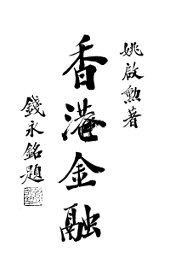 姚啟勲著
香港金融
錢永銘題